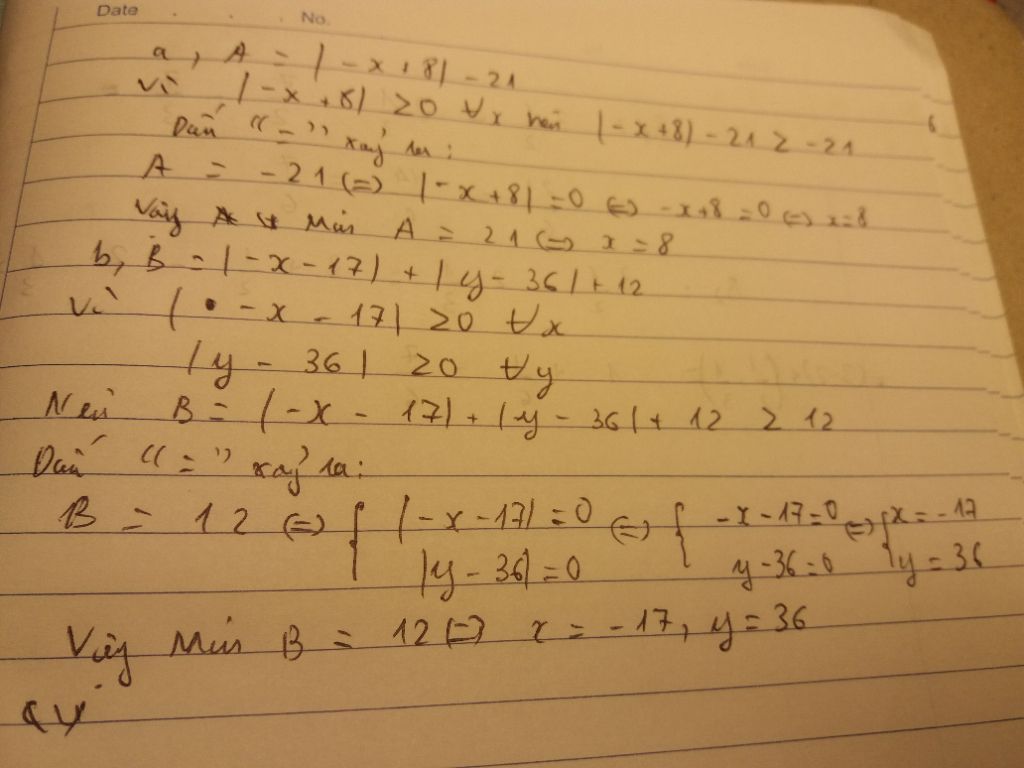 Date No.
a, A = |-x+8| - 21
Vì |-x+8| ≥0 ∀x nên |-x+8| - 21 ≥ -21
Dấu "=" xảy ra:
A = -21 (=) |-x+8| =0 (=) -x+8 =0 (=) x=8
Vậy Min A = 21 (=) x = 8
b, B = |-x-17| + |y-36| + 12
Vì |-x-17| ≥0 ∀x
|y-36| ≥0 ∀y
Nên B = |-x-17| + |y-36| + 12 ≥ 12
Dấu "=" xảy ra:
B = 12 (=) { |-x-17| =0 (=) { -x-17=0 (=) { x = -17
|y-36| =0 y-36=0 y = 36
Vậy Min B = 12 (=) x = -17, y = 36